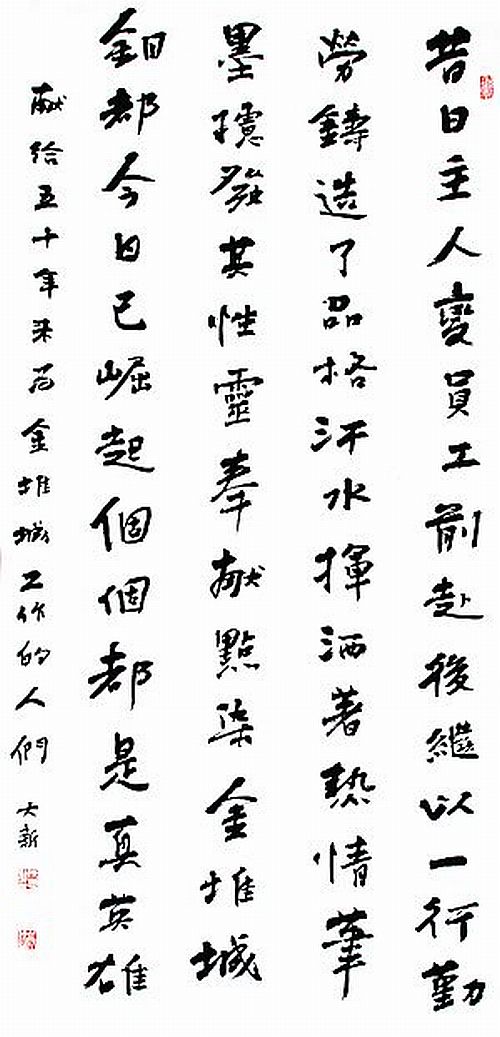 昔日主人變員工前赴後繼以一行勤
勞鑄造了品格汗水揮洒著熱情筆
墨攄發其性靈奉献點染金堆城
鉬都今日已崛起個個都是真英雄
献給五十年来为金堆城工作的人們 大新